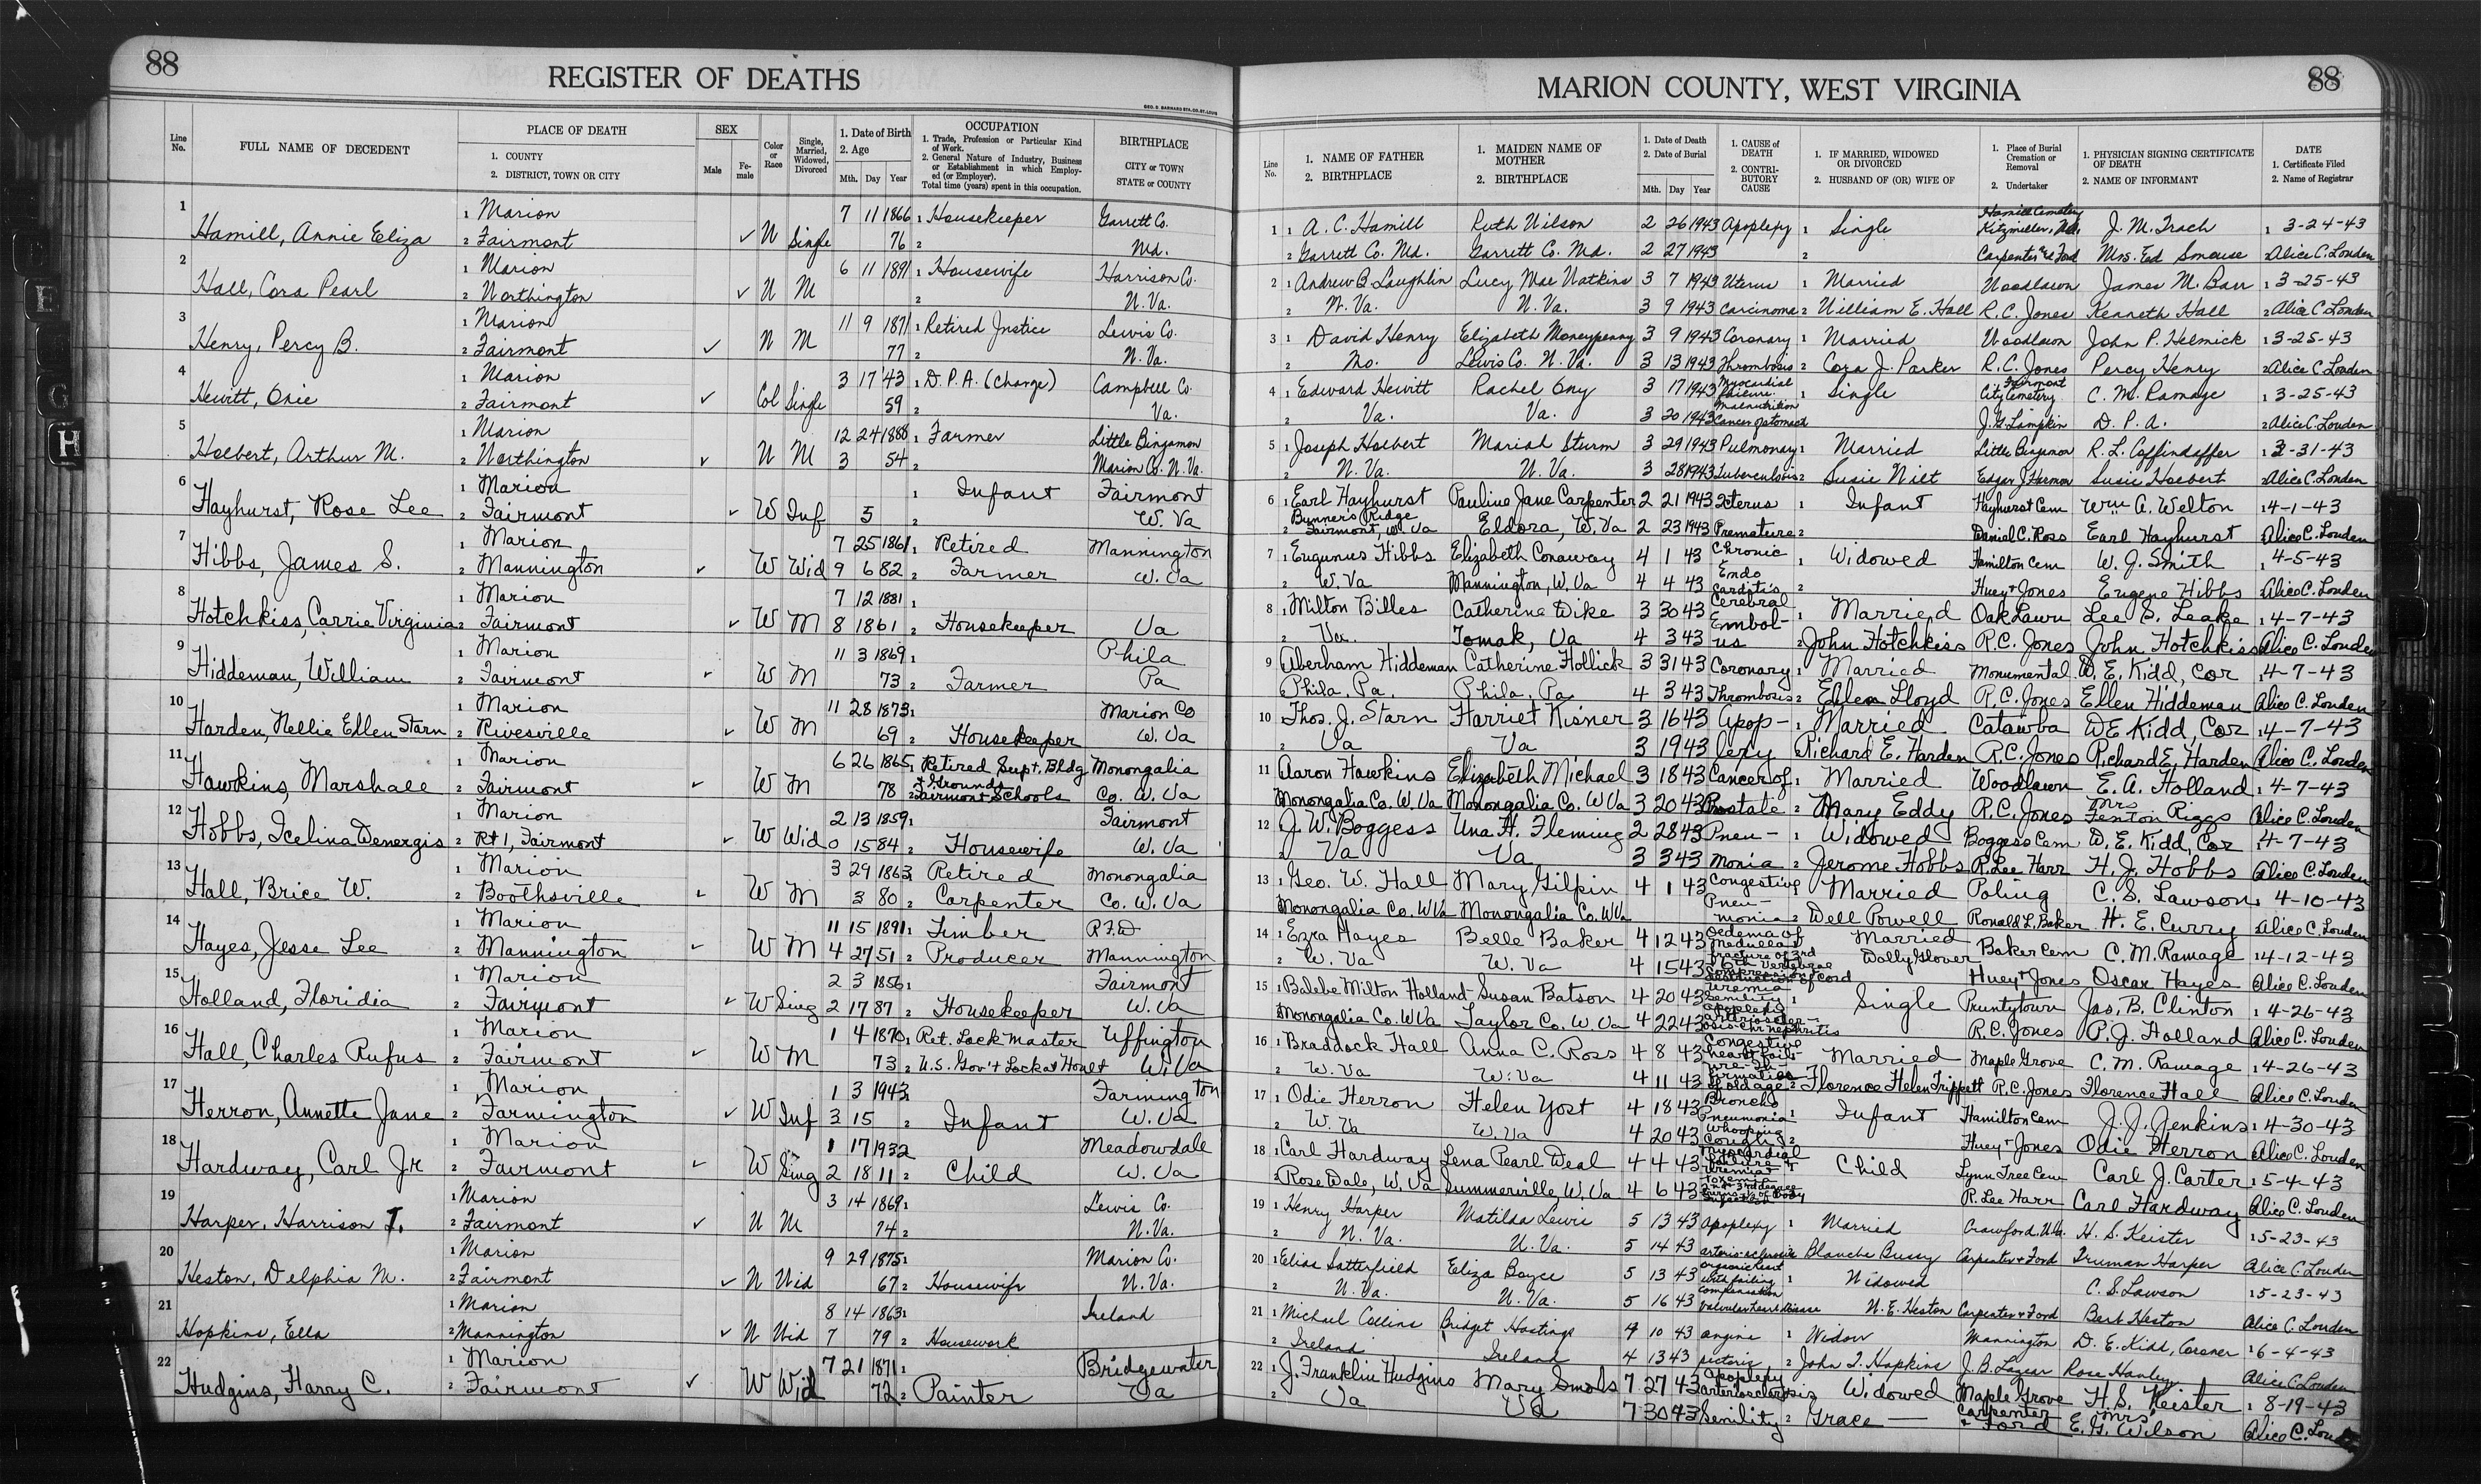 88
REGISTER OF DEATHS
GEO. D. BARNARD STA. CO. ST. LOUIS
Line No.
FULL NAME OF DECEDENT
PLACE OF DEATH
1. COUNTY
2. DISTRICT, TOWN OR CITY
SEX
Male
Female
Color or Race
Single, Married, Widowed, Divorced
1. Date of Birth
2. Age
Mth. Day Year
OCCUPATION
1. Trade, Profession or Particular Kind of Work.
2. General Nature of Industry, Business or Establishment in which Employed (or Employer).
Total time (years) spent in this occupation.
BIRTHPLACE
CITY or TOWN
STATE or COUNTY
1 Hamill, Annie Eliza 1 Marion 7 11 1866 1 Housekeeper Garrett Co.
2 Fairmont ✓ W Single 76 2 Md.
2 Hall, Cora Pearl 1 Marion 6 11 1891 1 Housewife Harrison Co.
2 Worthington ✓ W M 2 W. Va.
3 Henry, Percy B. 1 Marion 11 9 1871 1 Retired Justice Lewis Co.
2 Fairmont ✓ W M 77 2 W. Va.
4 Hewitt, Orie 1 Marion 3 17 '43 1 D.P.A. (Charge) Campbell Co.
2 Fairmont ✓ Col Single 59 2 Va.
5 Holbert, Arthur M. 1 Marion 12 24 1888 1 Farmer Little Bingamon
2 Worthington ✓ W M 3 54 2 Marion Co. W. Va.
6 Hayhurst, Rose Lee 1 Marion 1 Infant Fairmont
2 Fairmont ✓ W Inf 5 2 W. Va
7 Hibbs, James S. 1 Marion 7 25 1861 1 Retired Mannington
2 Mannington ✓ W Wid 9 6 82 2 Farmer W. Va
8 Hotchkiss, Carrie Virginia 1 Marion 7 12 1881 1
2 Fairmont ✓ W M 8 18 61 2 Housekeeper Va
9 Hiddeman, William 1 Marion 11 3 1869 1 Phila
2 Fairmont ✓ W M 73 2 Farmer Pa
10 Harden, Nellie Ellen Starn 1 Marion 11 28 1873 1 Marion Co
2 Rivesville ✓ W M 69 2 Housekeeper W. Va
11 Hawkins, Marshall 1 Marion 6 26 1865 1 Retired Supt. Bldg Monongalia
2 Fairmont ✓ W M 78 + Grounds 2 Fairmont Schools Co. W. Va
12 Hobbs, Icelina Denergis 1 Marion 2 13 1859 1 Fairmont
2 Rt 1, Fairmont ✓ W Wid 0 15 84 2 Housewife W. Va
13 Hall, Brice W. 1 Marion 3 29 1863 Retired Monongalia
2 Boothsville ✓ W M 3 80 2 Carpenter Co. W. Va
14 Hayes, Jesse Lee 1 Marion 11 15 1891 1 Timber R.F.D
2 Mannington ✓ W M 4 27 51 2 Producer Mannington
15 Holland, Floridia 1 Marion 2 3 1856 1 Fairmont
2 Fairmont ✓ W Sing 2 17 87 2 Housekeeper W. Va
16 Hall, Charles Rufus 1 Marion 1 4 1870 1 Ret. Lock Master Uffington
2 Fairmont ✓ W M 73 2 U.S. Gov't Lock at Hoult W. Va
17 Herron, Annette Jane 1 Marion 1 3 1943 Farmington
2 Farmington ✓ W Inf 3 15 2 Infant W. Va
18 Hardway, Carl Jr 1 Marion 1 17 1932 Meadowdale
2 Fairmont ✓ W Sing 2 18 11 2 Child W. Va
19 Harper, Harrison T. 1 Marion 3 14 1869 1 Lewis Co.
2 Fairmont ✓ W M 74 2 W. Va.
20 Heston, Delphia M. 1 Marion 9 29 1875 1 Marion Co.
2 Fairmont ✓ W Wid 67 2 Housewife W. Va.
21 Hopkins, Ella 1 Marion 8 14 1863 1 Ireland
2 Mannington ✓ W Wid 7 79 2 Housework
22 Hudgins, Harry C. 1 Marion 7 21 1871 1 Bridgewater
2 Fairmont ✓ W Wid 72 2 Painter Va
MARION COUNTY, WEST VIRGINIA
88
Line No.
1. NAME OF FATHER
2. BIRTHPLACE
1. MAIDEN NAME OF MOTHER
2. BIRTHPLACE
1. Date of Death
2. Date of Burial
Mth. Day Year
1. CAUSE of DEATH
2. CONTRIBUTORY CAUSE
1. IF MARRIED, WIDOWED OR DIVORCED
2. HUSBAND OF (OR) WIFE OF
1. Place of Burial Cremation or Removal
2. Undertaker
1. PHYSICIAN SIGNING CERTIFICATE OF DEATH
2. NAME OF INFORMANT
DATE
1. Certificate Filed
2. Name of Registrar
1 1 A. C. Hamill Ruth Wilson 2 26 1943 Apoplexy 1 Single Hamill Cemetery Kitzmiller, Md. J. M. Trach 1 3-24-43
2 Garrett Co. Md. Garrett Co. Md. 2 27 1943 2 Carpenter & Ford Mrs. Ed Smouse Alice C. Louden
2 1 Andrew B. Laughlin Lucy Mae Watkins 3 7 1943 Uterus 1 Married Woodlawn James M. Barr 1 3-25-43
2 W. Va. W. Va. 3 9 1943 Carcinoma 2 William E. Hall R. C. Jones Kenneth Hall 2 Alice C. Louden
3 1 David Henry Elizabeth Moneypenny 3 9 1943 Coronary 1 Married Woodlawn John P. Helmick 1 3-25-43
2 Mo. Lewis Co. W. Va. 3 13 1943 Thrombosis 2 Cora J. Parker R. C. Jones Percy Henry 2 Alice C. Louden
4 1 Edward Hewitt Rachel Ony 3 17 1943 Myocardial Failure 1 Single Fairmont City Cemetery C. M. Ramage 1 3-25-43
2 Va. Va. 3 20 1943 Malnutrition Cancer of stomach J. G. Lampkin D. P. A. 2 Alice C. Louden
5 1 Joseph Holbert Mariah Sturm 3 29 1943 Pulmonary 1 Married Little Bingamon R. L. Coffindaffer 1 3-31-43
2 W. Va. W. Va. 3 28 1943 Tuberculosis 2 Susie Edgar J. Harmer Susie Holbert 2 Alice C. Louden
6 1 Earl Hayhurst Pauline Jane Carpenter 2 21 1943 Icterus 1 Infant Hayhurst Cem Wm A. Welton 1 4-1-43
2 Bunner's Ridge Fairmont, W. Va Eldora, W. Va 2 23 1943 Premature 2 Daniel C. Ross Earl Hayhurst Alice C. Louden
7 1 Eugunus Hibbs Elizabeth Conaway 4 1 43 Chronic 1 Widowed Hamilton Cem W. J. Smith 1 4-5-43
2 W. Va Mannington, W. Va 4 4 43 Endo Carditis 2 Huey + Jones Eugene Hibbs Alice C. Louden
8 1 Milton Billes Catherine Dike 3 30 43 Cerebral 1 Married Oak Lawn Lee S. Leake 1 4-7-43
2 Va. Tomak, Va 4 3 43 Embolus 2 John Hotchkiss R. C. Jones John Hotchkiss Alice C. Louden
9 Aberham Hiddeman Catherine Hollick 3 31 43 Coronary 1 Married Monumental W. E. Kidd, Cor 1 4-7-43
Phila, Pa. Phila, Pa 4 3 43 Thrombosis 2 Ellen Lloyd R. C. Jones Ellen Hiddeman Alice C. Louden
10 1 Thos. J. Starn Harriet Kisner 3 16 43 Apop- 1 Married Catawba D E Kidd, Cor 1 4-7-43
2 Va Va 3 19 43 lexy Richard E. Harden R. C. Jones Richard E. Harden Alice C. Louden
11 Aaron Hawkins Elizabeth Michael 3 18 43 Cancer of 1 Married Woodlawn E. A. Holland 1 4-7-43
Monongalia Co. W. Va Monongalia Co. W Va 3 20 43 Prostate 2 Mary Eddy R. C. Jones Mrs Fenton Riggs Alice C. Louden
12 J. W. Boggess Una H. Fleming 2 28 43 Pneu- 1 Widowed Boggess Cem D. E. Kidd, Cor 1 4-7-43
2 Va Va 3 3 43 monia 2 Jerome Hobbs R. Lee Harr H. J. Hobbs Alice C. Louden
13 1 Geo. W. Hall Mary Gilpin 4 1 43 Congestive Married Poling C. S. Lawson 1 4-10-43
Monongalia Co. W Va Monongalia Co. W Va Pneumonia 2 Dell Powell Ronald L. Baker H. E. Curry Alice C. Louden
14 1 Ezra Hayes Belle Baker 4 12 43 Oedema of Medulla + fracture of 3rd Married Baker Cem C. M. Ramage 1 4-12-43
2 W. Va W. Va 4 15 43 Vertebrae Compression of cord Dolly Glover Huey + Jones Oscar Hayes Alice C. Louden
15 1 Balebe Milton Holland Susan Batson 4 20 43 Uremia Senility 1 Single Pruntytown Jas. B. Clinton 1 4-26-43
Monongalia Co. W Va Taylor Co. W. Va 4 22 43 Apoplexy arteriosclerosis Chr nephritis R. C. Jones P. J. Holland Alice C. Louden
16 1 Braddock Hall Anna C. Ross 4 8 43 Congestive heart fail- Married Maple Grove C. M. Ramage 1 4-26-43
2 W. Va W. Va 4 11 43 ure of old age 2 Florence Helen Trippett R. C. Jones Florence Hall Alice C. Louden
17 1 Odie Herron Helen Yost 4 18 43 Broncho Pneumonia 1 Infant Hamilton Cem J. J. Jenkins 1 4-30-43
2 W. Va W. Va 4 20 43 Whooping Cough 2 Huey + Jones Odie Herron Alice C. Louden
18 1 Carl Hardway Lena Pearl Deal 4 4 43 Myocardial failure + uremia + Child Lynn Tree Cem Carl J. Carter 1 5-4-43
2 Rose Dale, W. Va Summerville, W. Va 4 6 43 2nd + 3rd degree burns of body R. Lee Harr Carl Hardway Alice C. Louden
19 1 Henry Harper Matilda Lewis 5 13 43 Apoplexy 1 Married Crawford, W. Va. H. S. Keister 1 5-23-43
2 W. Va. W. Va. 5 14 43 arterio-sclerosis Blanche Bussy Carpenter + Ford Truman Harper Alice C. Louden
20 1 Elias Satterfield Eliza Boyce 5 13 43 organic heart with failing compensation 1 Widowed C. S. Lawson 1 5-23-43
2 W. Va. W. Va. 5 16 43 valvular heart disease W. E. Heston Carpenter + Ford Bert Heston Alice C. Louden
21 1 Michael Collins Bridget Hastings 4 10 43 angina 1 Widow Mannington D. E. Kidd, Coroner 1 6-4-43
2 Ireland Ireland 4 13 43 pectoris 2 John T. Hopkins J. B. Rose Hanley Alice C. Louden
22 1 J. Franklin Hudgins Mary Smols 7 27 43 Apoplexy arteriosclerosis Widowed Maple Grove H. S. Keister 1 8-19-43
2 Va Va 7 30 43 Senility 2 Grace — Carpenter + Ford Mrs. E. G. Wilson Alice C. Louden
E
G
H